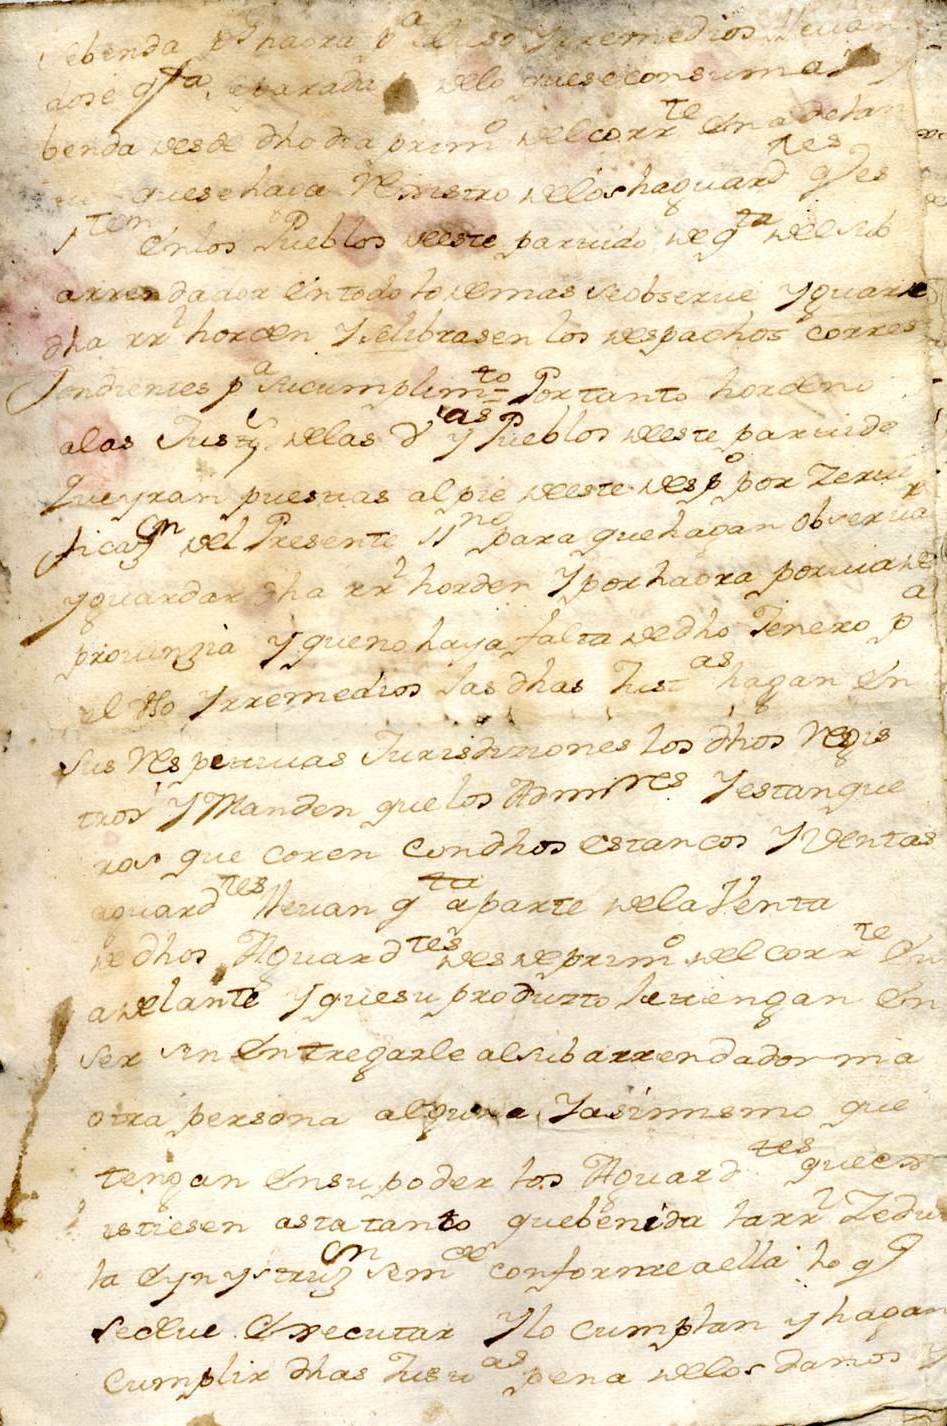 benda q haora pa el uso y rremedios lleuan
dose qta separada de lo que se consuma y
benda desde dho dia primo del corrte en adelan
que se haga rexistro de los haguardtes q es
Yten en los Pueblos deeste partido de qta del sub
arrendador en todo lo demas se obserue y guarde
dha rrl horden y se librasen los despachos corres
pondientes pa su cumplimto = Por tanto hordeno
a las Justs de las Vas y Pueblos deeste partido
que yran puestas al pie deeste despo por Zerti
ficazn del Presente ssno para que hagan obserua
y guardar dha rrl horden y por haora por uia de
prouinzia y que no haya falta de dho Jenero pa
el uso y rremedios las dhas Justas hagan en
sus respectiuas Jurisdiziones los dhos regis
tros y Manden que los Admres y estanque
ros que coren con dhos estancos y Ventas
aguardtes lleuan qta aparte de la Venta
de dhos Aguardtes desde primo del corrte en
adelante y que su produzto le tengan en
ser sin entregarle al sub arrendador ni a
otra persona alguna y asi mismo que
tengan en su poder los Aguardtes que ex
istiesen asta tanto que benida la rrl Zedu
la e ynstruzn se mde conforme a ella lo q
se deue executar y lo cumplan y hagan
cumplir dhas Justas pena de los daños y